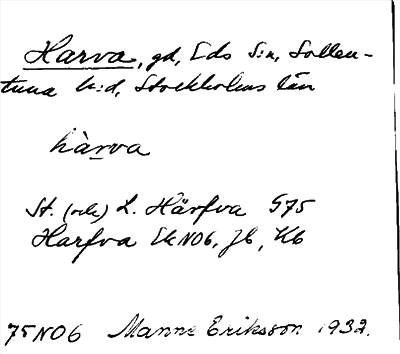 Harva, gd, Eds S:n, Sollen-
tuna h:d, Stockholms län
hàrva
St. (och) L. Härfva G75
Harfva Ek NO6, Jb, Kb
75NO6 Manne Eriksson 1932.